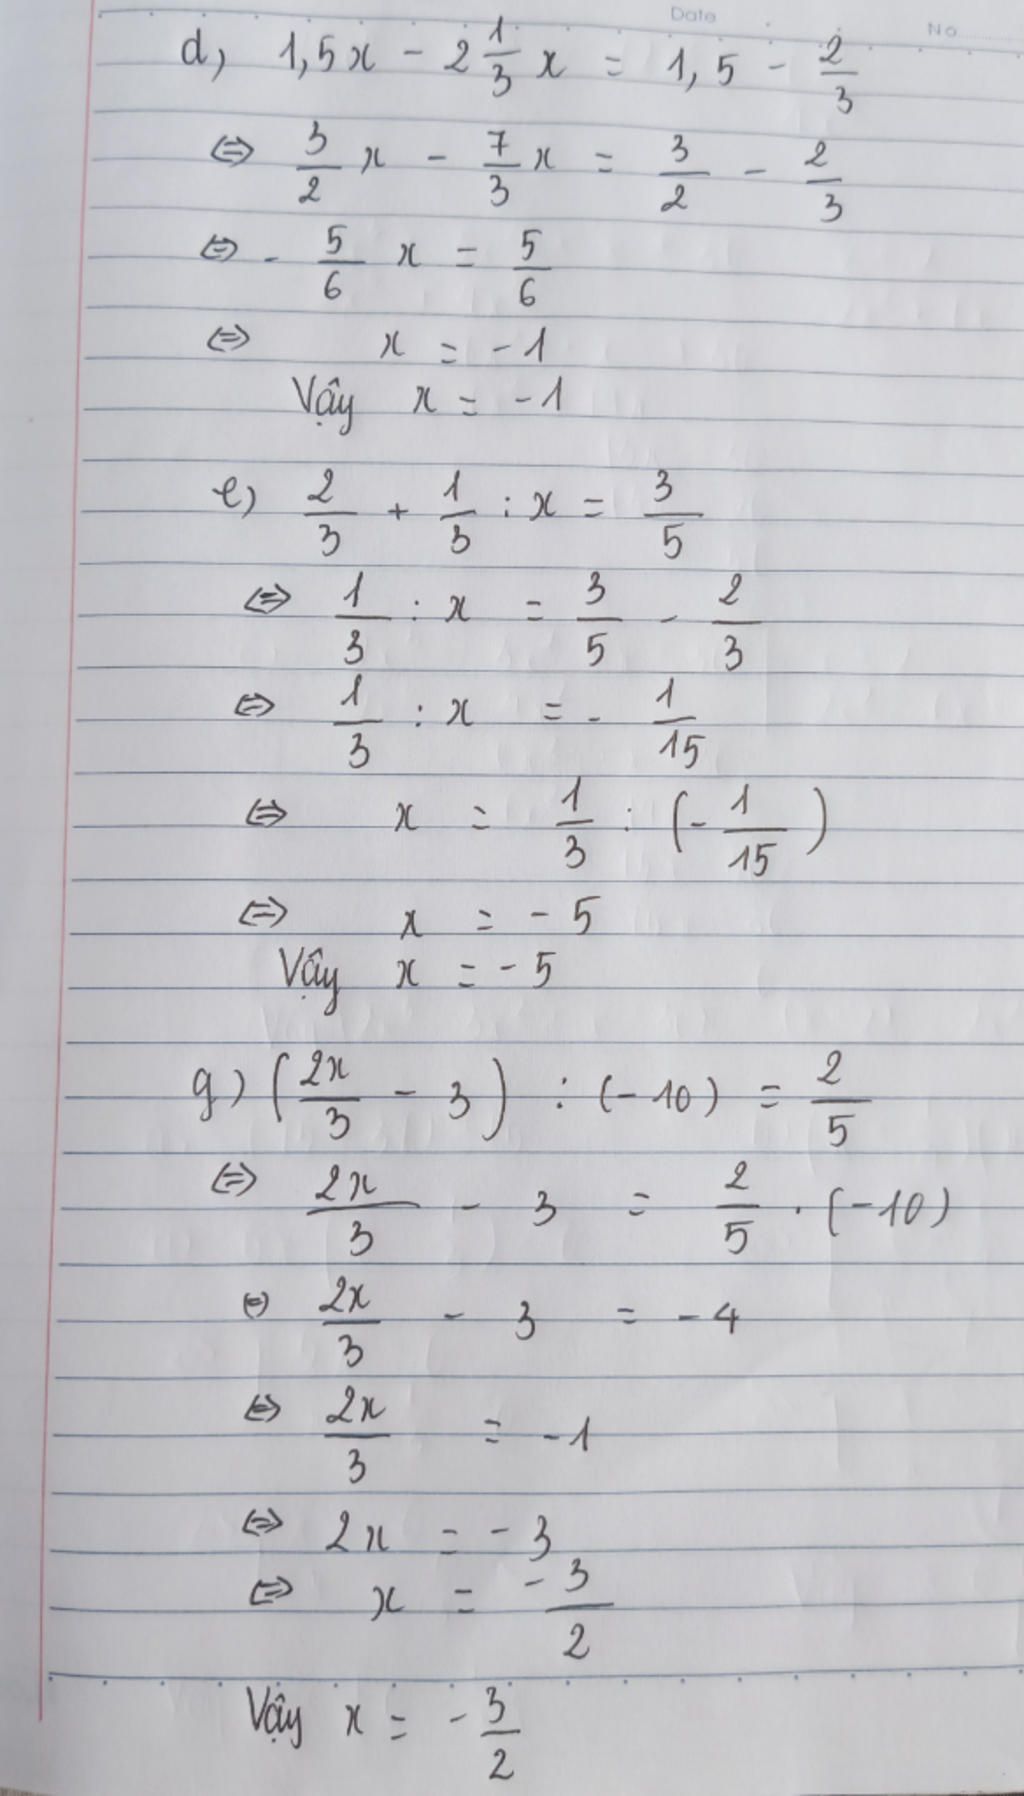 Date
No
d, 1,5x - 2 1/3 x = 1,5 - 2/3
⇔ 3/2 x - 7/3 x = 3/2 - 2/3
⇔ - 5/6 x = 5/6
⇔ x = -1
Vậy x = -1
e) 2/3 + 1/3 : x = 3/5
⇔ 1/3 : x = 3/5 - 2/3
⇔ 1/3 : x = - 1/15
⇔ x = 1/3 : (- 1/15)
⇔ x = -5
Vậy x = -5
g) (2x/3 - 3) : (-10) = 2/5
⇔ 2x/3 - 3 = 2/5 . (-10)
⇔ 2x/3 - 3 = -4
⇔ 2x/3 = -1
⇔ 2x = -3
⇔ x = -3/2
Vậy x = - 3/2